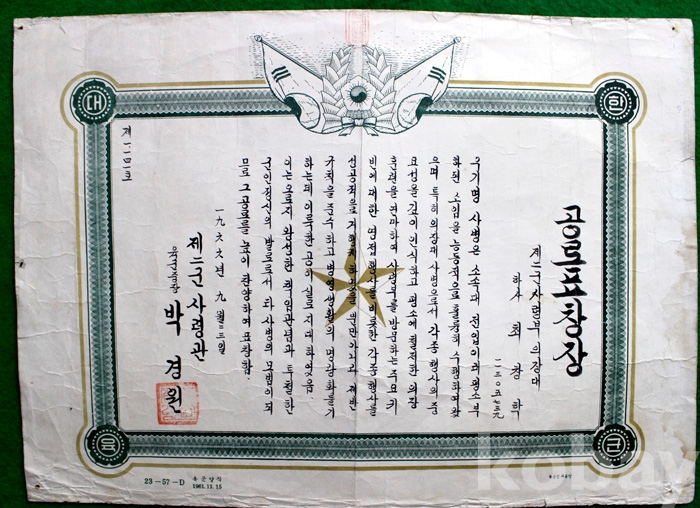 대 한
공로표창장
제二군사령부 의장대
하사 최창학
우기명 사병은 소속대 전입이래 평소부
하된 소임을 능동적으로 충실히 수행하여왔
으며 특히 의장대 사병으로서 각종 행사의 중
요성을 깊이 인식하고 평소에 철저한 의장
훈련을 연마하여 사령부를 방문하는 주요 귀
빈에 대한 영접행사를 비롯한 각종 행사를
성공적으로 거행 뿐만아니라 제반
규칙을 준수하고 병영생활의 명랑화를 기
하는데 이룩한 공이 실로 지대하였음
이는 오로지 왕성한 책임관념과 투철한
군인정신의 발로로서 타 사병의 모범이 되
므로 그 공적을 높이 찬양하여 표창함.
一九六六년 九월 三일
제二군사령관
육군중장 박경원
육 군
23-57-D 육군양식
1961.11.15
kobay